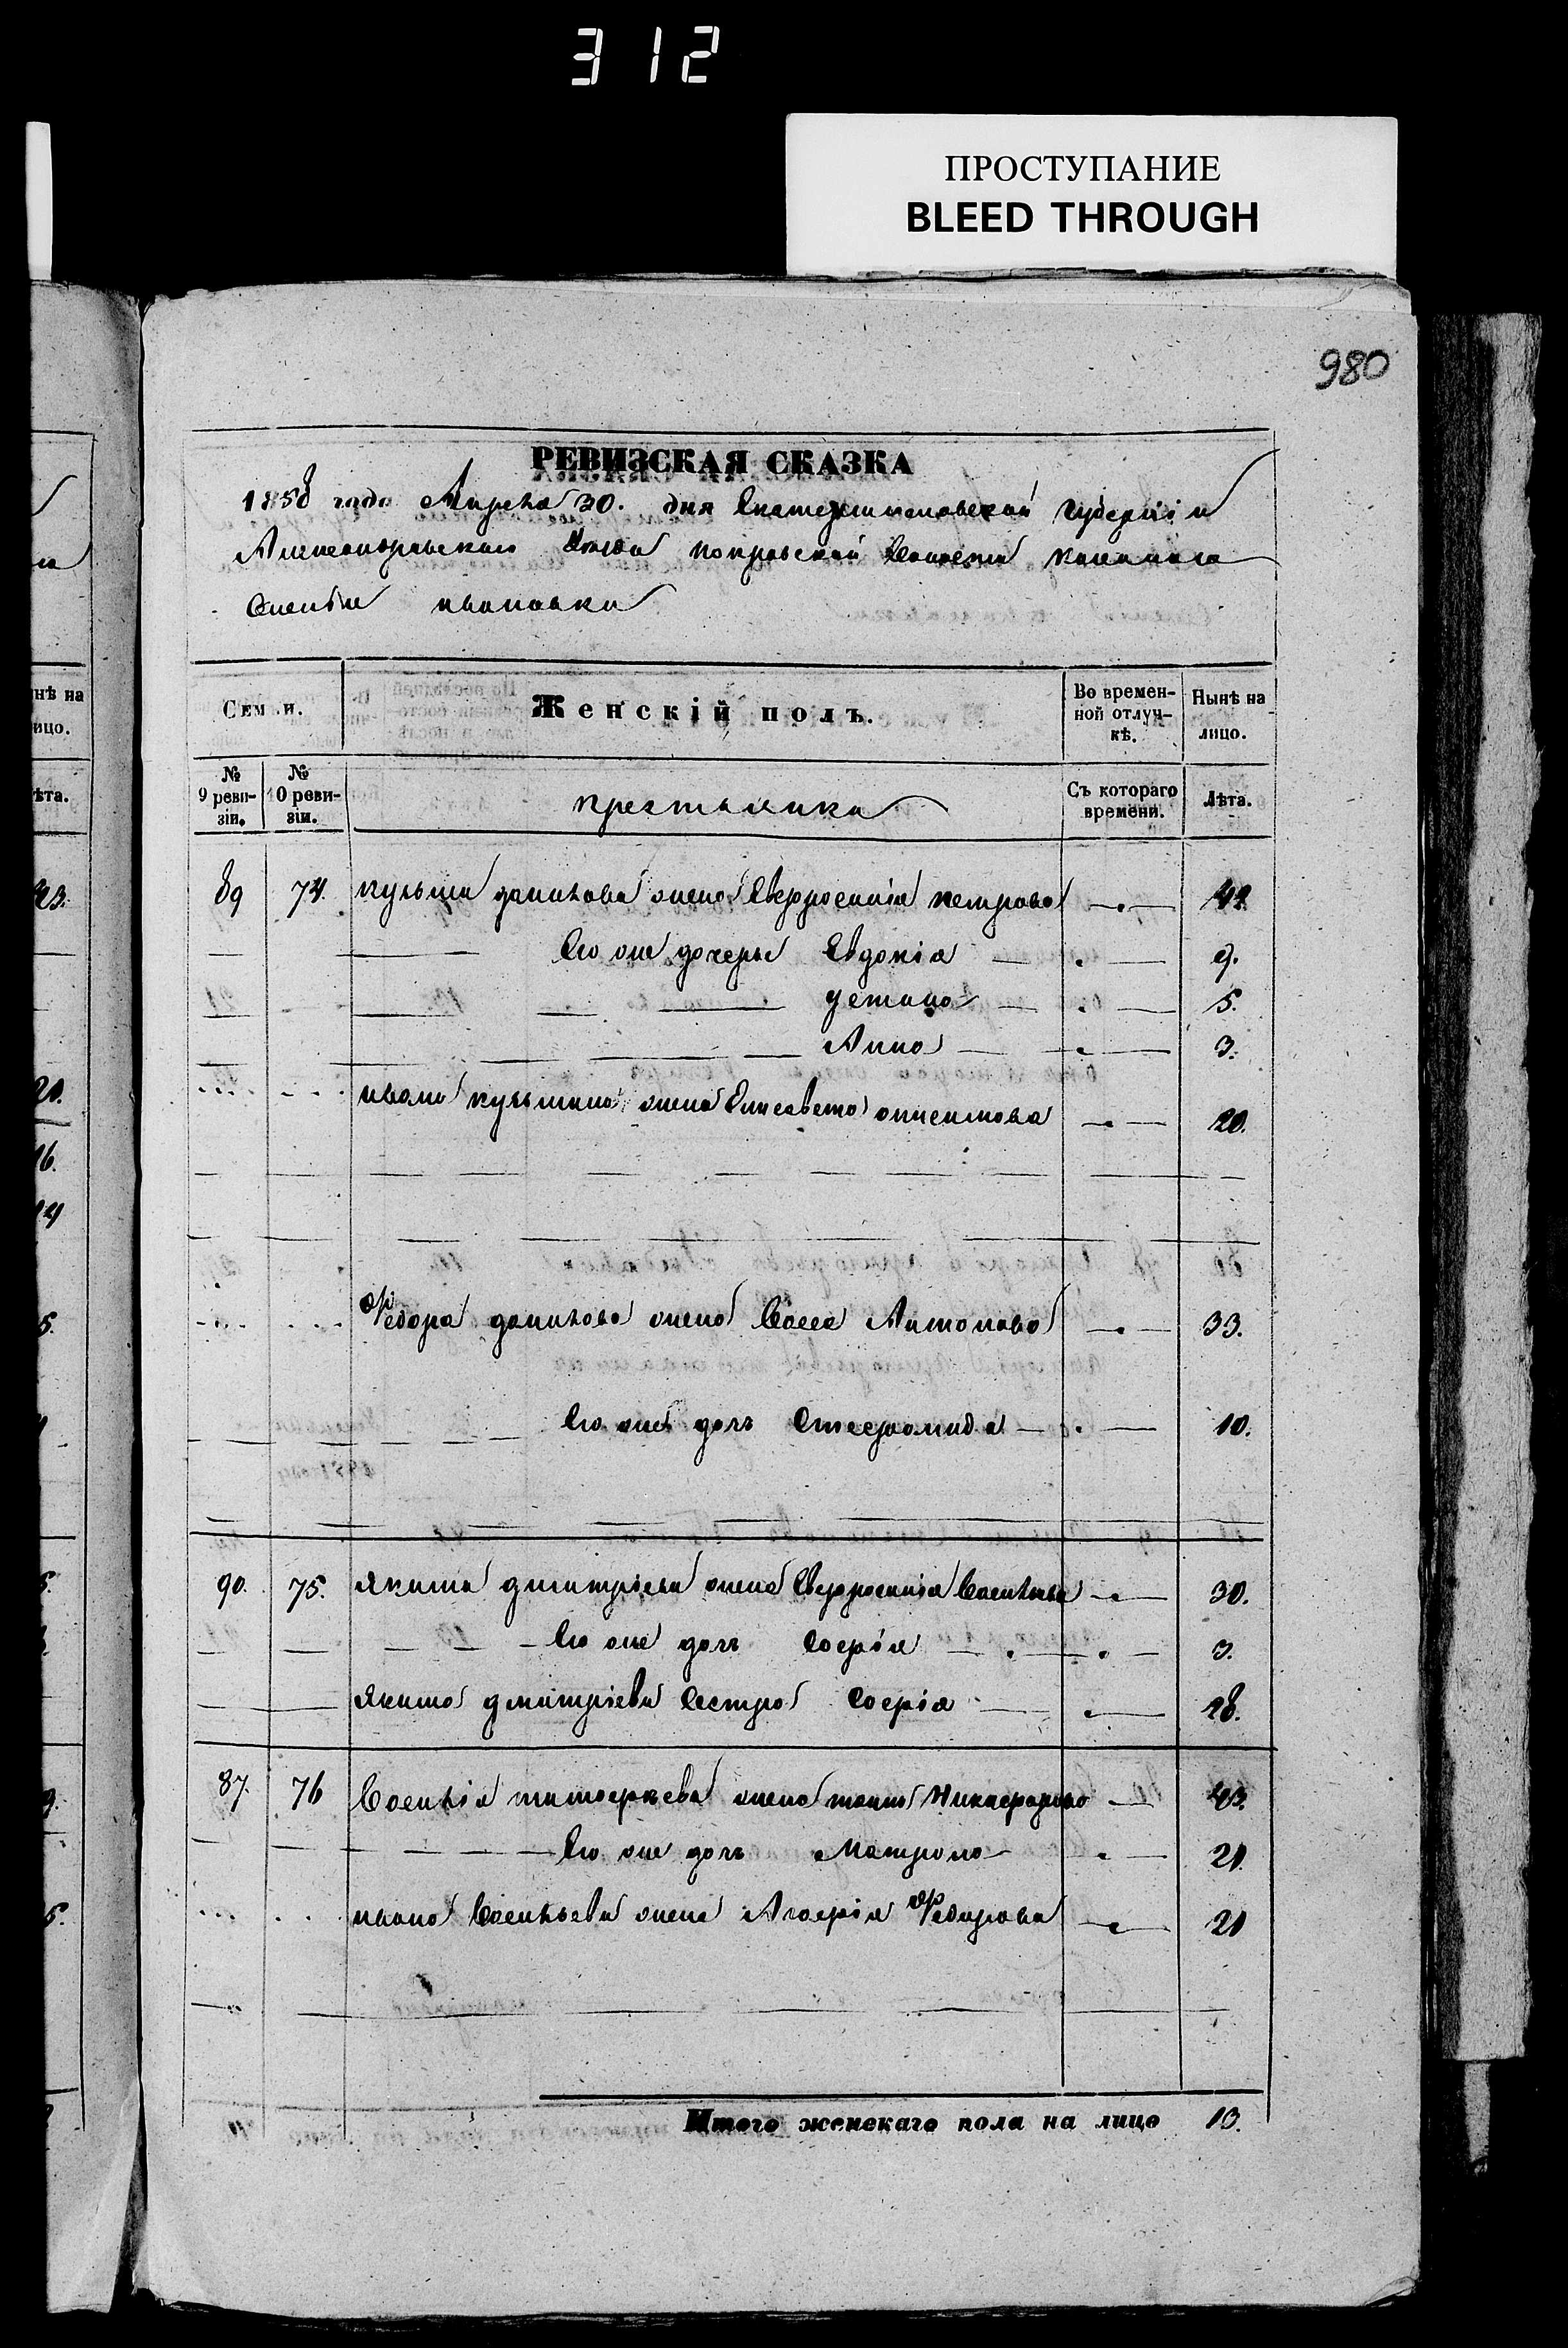 312
ПРОСТУПАНИЕ
BLEED THROUGH
980
РЕВИЗСКАЯ СКАЗКА
1858 года Апреля 30. дня Екатеринославской Губерніи
Александровскаго Уезда покровской Волости казеннаго
Селенія ивановки
Семьи.
Женскій полъ.
Во времен-
ной отлуч-
кѣ.
Нынѣ на
лицо.
№
9 реви-
зіи.
№
10 реви-
зіи.
крестьянка
Съ котораго
времени.
Лѣта.
89 74. кузьми данилова жена Евфросинія петрова
Его же дочерьи Евдокія 9.
устина 5.
Анна 3.
ивана кузьмина жена Елисавета 20.
Федора данилова жена Васса Антонова 33.
Его же дочь Стефанида 10.
90. 75. Якима дмитріева жена Евфросинія Васильева 30.
Его же дочь Софія 3.
Якима дмитріева Сестра Софія 28.
87. 76 Василія тимофеева жена Никифорова 43.
Его же дочь Матрона 21
ивана Васильева жена Агафія Федорова 21
Итого женскаго пола на лицо 13.
нѣ на
ицо.
ѣта.